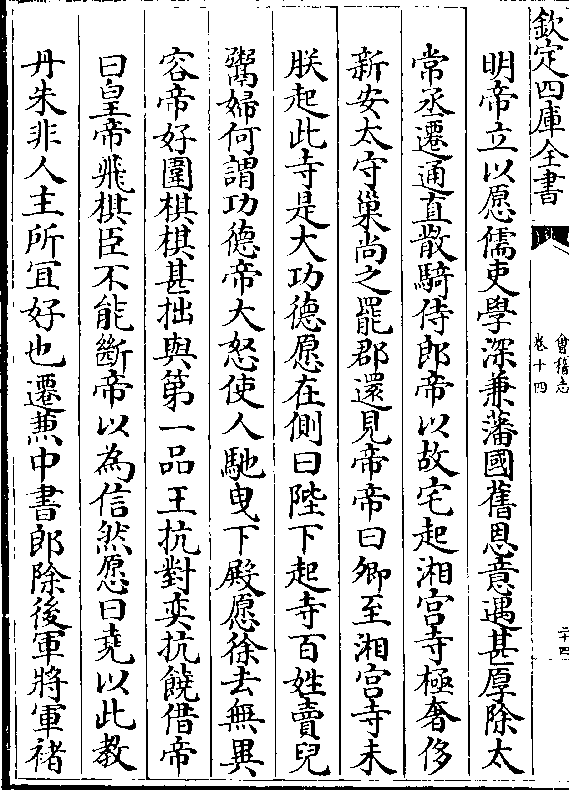 欽定四庫全書
會稽志
卷十四
二十四
明帝立以愿儒吏學深兼藩國舊恩意遇甚厚除太
常丞遷通直散騎侍郎帝以故宅起湘宫寺極奢侈
新安太守巢尚之罷郡還見帝帝曰卿至湘宫寺未
朕起此寺是大功德愿在側曰陛下起寺百姓賣兒
鬻婦何謂功德帝大怒使人馳曳下殿愿徐去無異
容帝好圍棋棋甚拙與第一品王抗對奕抗饒借帝
曰皇帝飛棋臣不能斷帝以為信然愿曰堯以此教
丹朱非人主所宜好也遷兼中書郎除後軍將軍褚